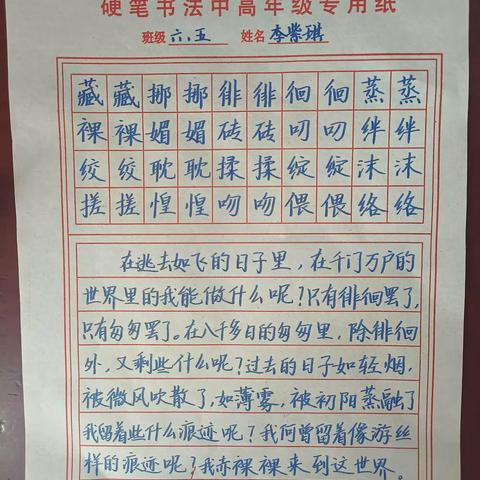 硬笔书法中高年级专用纸
班级 六、五 姓名 李紫琪
藏藏挪挪徘徘徊徊蒸蒸
裸裸媚媚砖砖叨叨绊绊
绞绞耽耽揉揉绽绽沫沫
搓搓惶惶吻吻偎偎络络
在逃去如飞的日子里，在千门万户的
世界里的我能做什么呢？只有徘徊罢了，
只有匆匆罢了。在八千多日的匆匆里，除徘徊
外，又剩些什么呢？过去的日子如轻烟，
被微风吹散了，如薄雾，被初阳蒸融了
我留着些什么痕迹呢？我何曾留着像游丝
样的痕迹呢？我赤裸裸来到这世界。